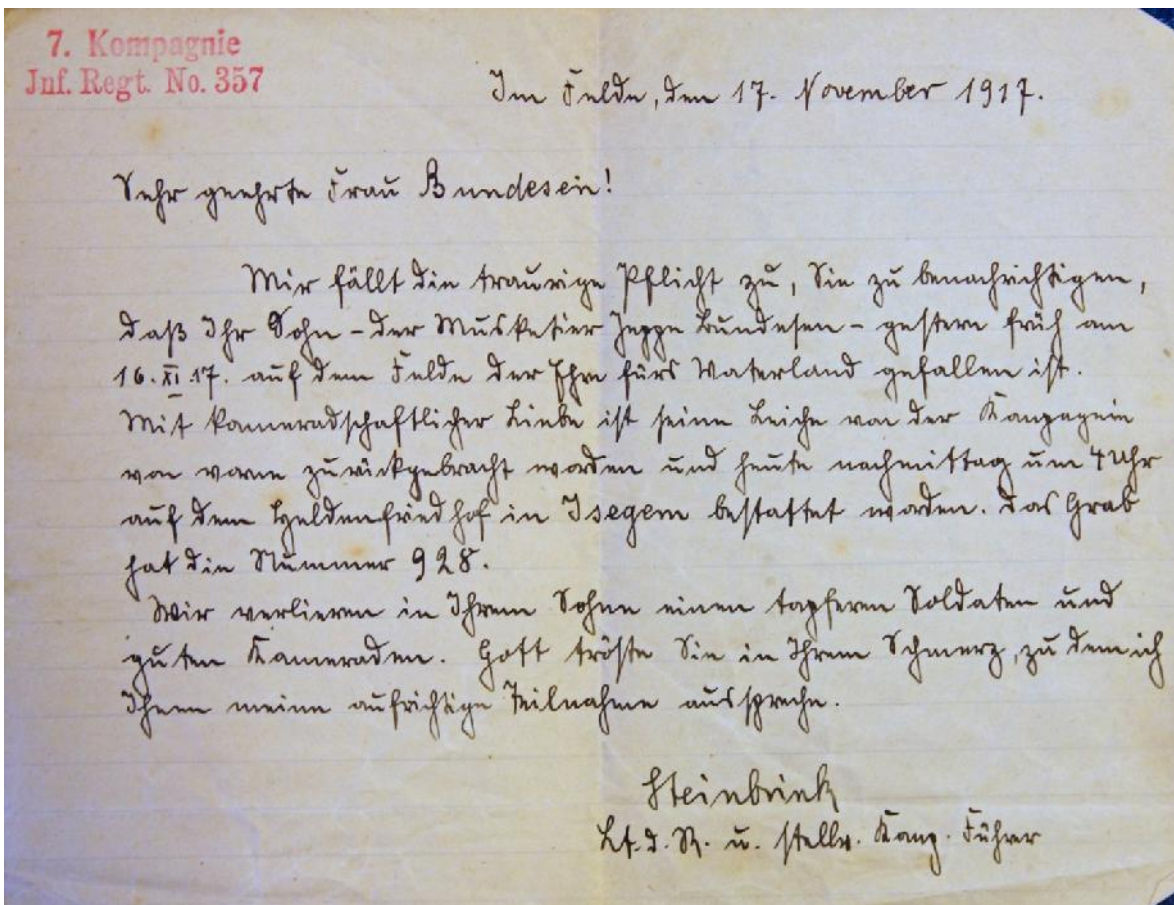 7. Kompagnie
Inf. Regt. No. 357
Im Felde, den 17. November 1917.
Sehr geehrte Frau Bundesein!
Mir fällt die traurige Pflicht zu, Sie zu benachrichtigen,
daß Ihr Sohn - der Musketier Jeppe Bundesen - gestern früh am
16. XI. 17. auf dem Felde der Ehre fürs Vaterland gefallen ist.
Mit kameradschaftlicher Liebe ist seine Leiche von der Kompagnie
von vorne zurückgebracht worden und heute nachmittag um 4 Uhr
auf dem Heldenfriedhof in Isegem bestattet worden. Das Grab
hat die Nummer 928.
Wir verlieren in Ihrem Sohne einen tapferen Soldaten und
guten Kameraden. Gott tröste Sie in Ihrem Schmerz, zu dem ich
Ihnen meine aufrichtige Teilnahme ausspreche.
Steinbrink
Lt. d. R. u. stellv. Komp. Führer